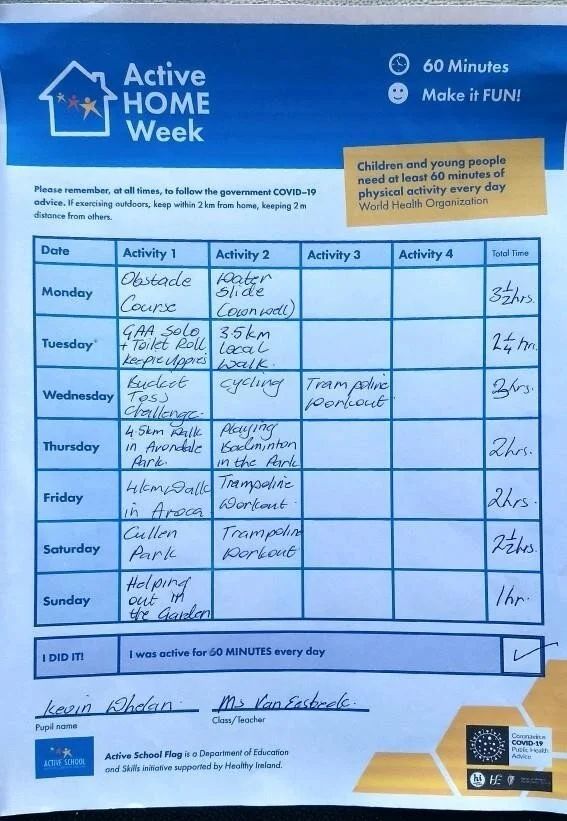 Active
HOME
Week
60 Minutes
Make it FUN!
Children and young people
need at least 60 minutes of
physical activity every day
World Health Organization
Please remember, at all times, to follow the government COVID-19
advice. If exercising outdoors, keep within 2 km from home, keeping 2 m
distance from others.
Date Activity 1 Activity 2 Activity 3 Activity 4 Total Time
Monday
Obstacle
Course
Water
Slide
(Cown well)
3½hrs.
Tuesday
GAA Solo
+ Toilet Roll
Keepie Uppies
3.5km
local
walk.
2¼ hr.
Wednesday
Bucket
Toss
Challenge.
Cycling
Trampoline
workout.
3hrs.
Thursday
4.5km Walk
in Avondale
Park.
Playing
Badminton
in the Park
2hrs.
Friday
4km Walk
in Avoca
Trampoline
Workout.
2hrs.
Saturday
Cullen
Park
Trampoline
Workout
2½hrs.
Sunday
Helping
out in
the Garden
1hr.
I DID IT! I was active for 60 MINUTES every day
Kevin Whelan. Ms Van
Pupil name Class/Teacher
ACTIVE SCHOOL
Active School Flag is a Department of Education
and Skills initiative supported by Healthy Ireland.
Coronavirus
COVID-19
Public Health
Advice